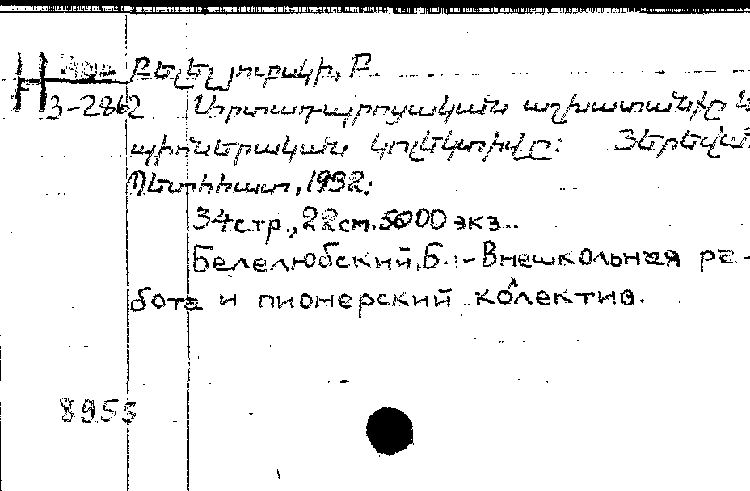 Բելելյուբսկի, Բ.
3-2862 Արտադպրոցական աշխատանքը և
պիոներական կոլեկտիվը: Յերեվան
Պետհրատ, 1932:
34стр., 22см. 5000 экз..
Белелюбский, Б. :- Внешкольная ра-
бота и пионерский колектив.
8955